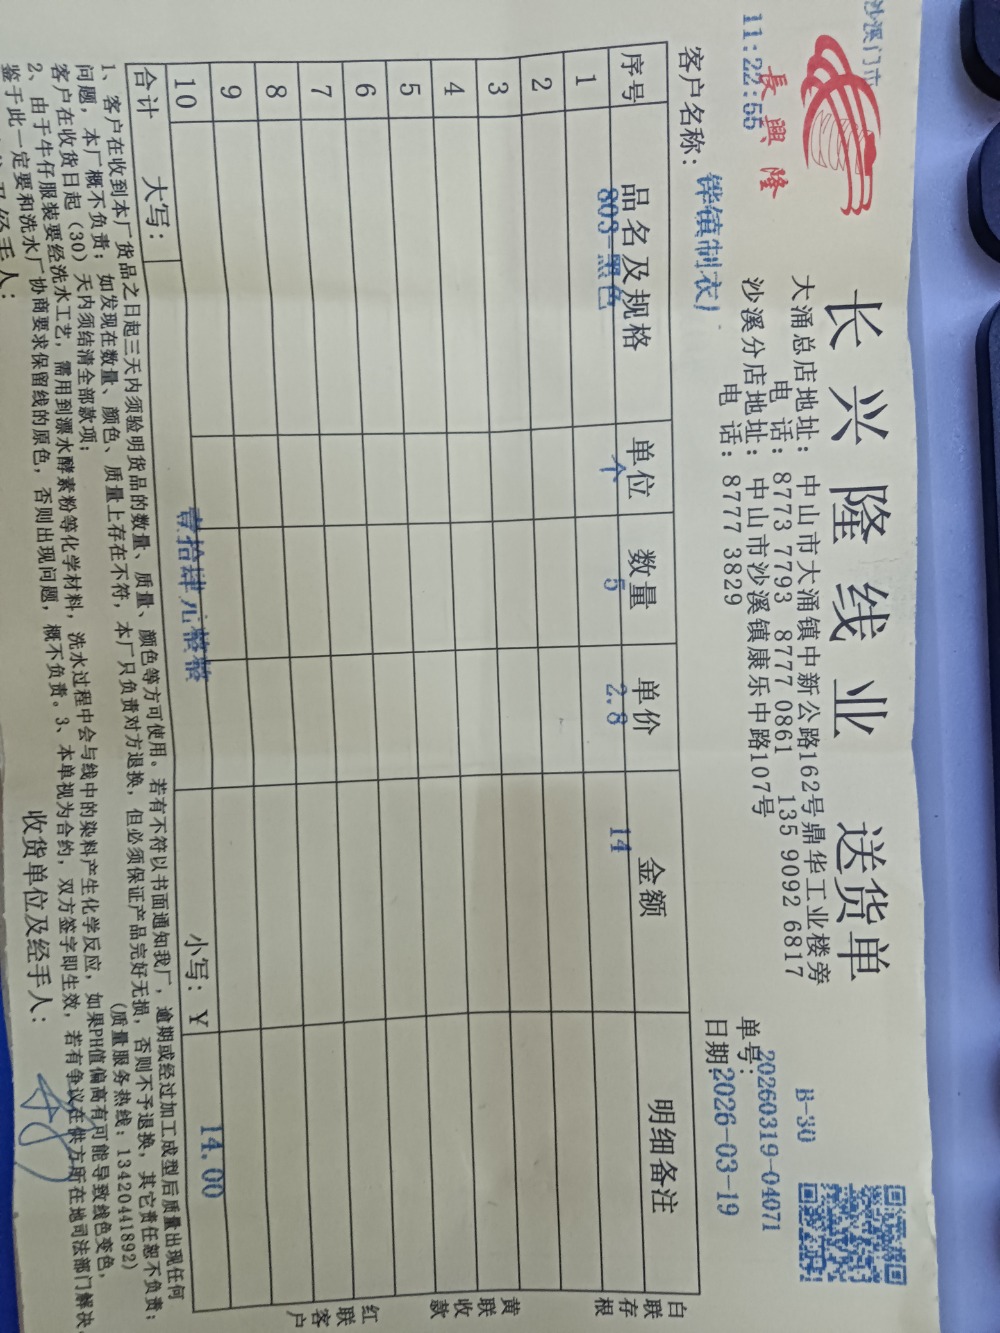 沙溪门市
11:22:55
長興隆
长兴隆线业 送货单
大涌总店地址：中山市大涌镇中新公路162号鼎华工业楼旁
电 话：8773 7793 8777 0861 135 9092 6817
沙溪分店地址：中山市沙溪镇康乐中路107号
电 话：8777 3829
B-30
单号：20260319-04071
日期：2026-03-19
客户名称：镇制衣厂
序号 品名及规格 单位 数量 单价 金额 明细备注
1 803-黑色 个 5 2.8 14
2
3
4
5
6
7
8
9
10
合计 大写：壹拾肆元整 小写：￥ 14.00
白联存根
黄联收款
红联客户
1、客户在收到本厂货品之日起三天内须验明货品的数量、质量、颜色等方可使用。若有不符以书面通知我厂，逾期或经过加工成型后质量出现任何
问题，本厂概不负责；如发现在数量、颜色、质量上存在不符，本厂只负责对方退换，但必须保证产品完好无损，否则不予退换，其它责任恕不负责；
客户在收货日起（30）天内须结清全部款项； （质量服务热线：13420441892）
2、由于牛仔服装要经洗水工艺，需用到漂水酵素粉等化学材料，洗水过程中会与线中的染料产生化学反应，如果PH值偏高有可能导致线色变色，
鉴于此一定要和洗水厂协商要求保留线的原色，否则出现问题，概不负责。3、本单视为合约，双方签字即生效，若有争议在供方所在地司法部门解决。
及经手人：
收货单位及经手人：